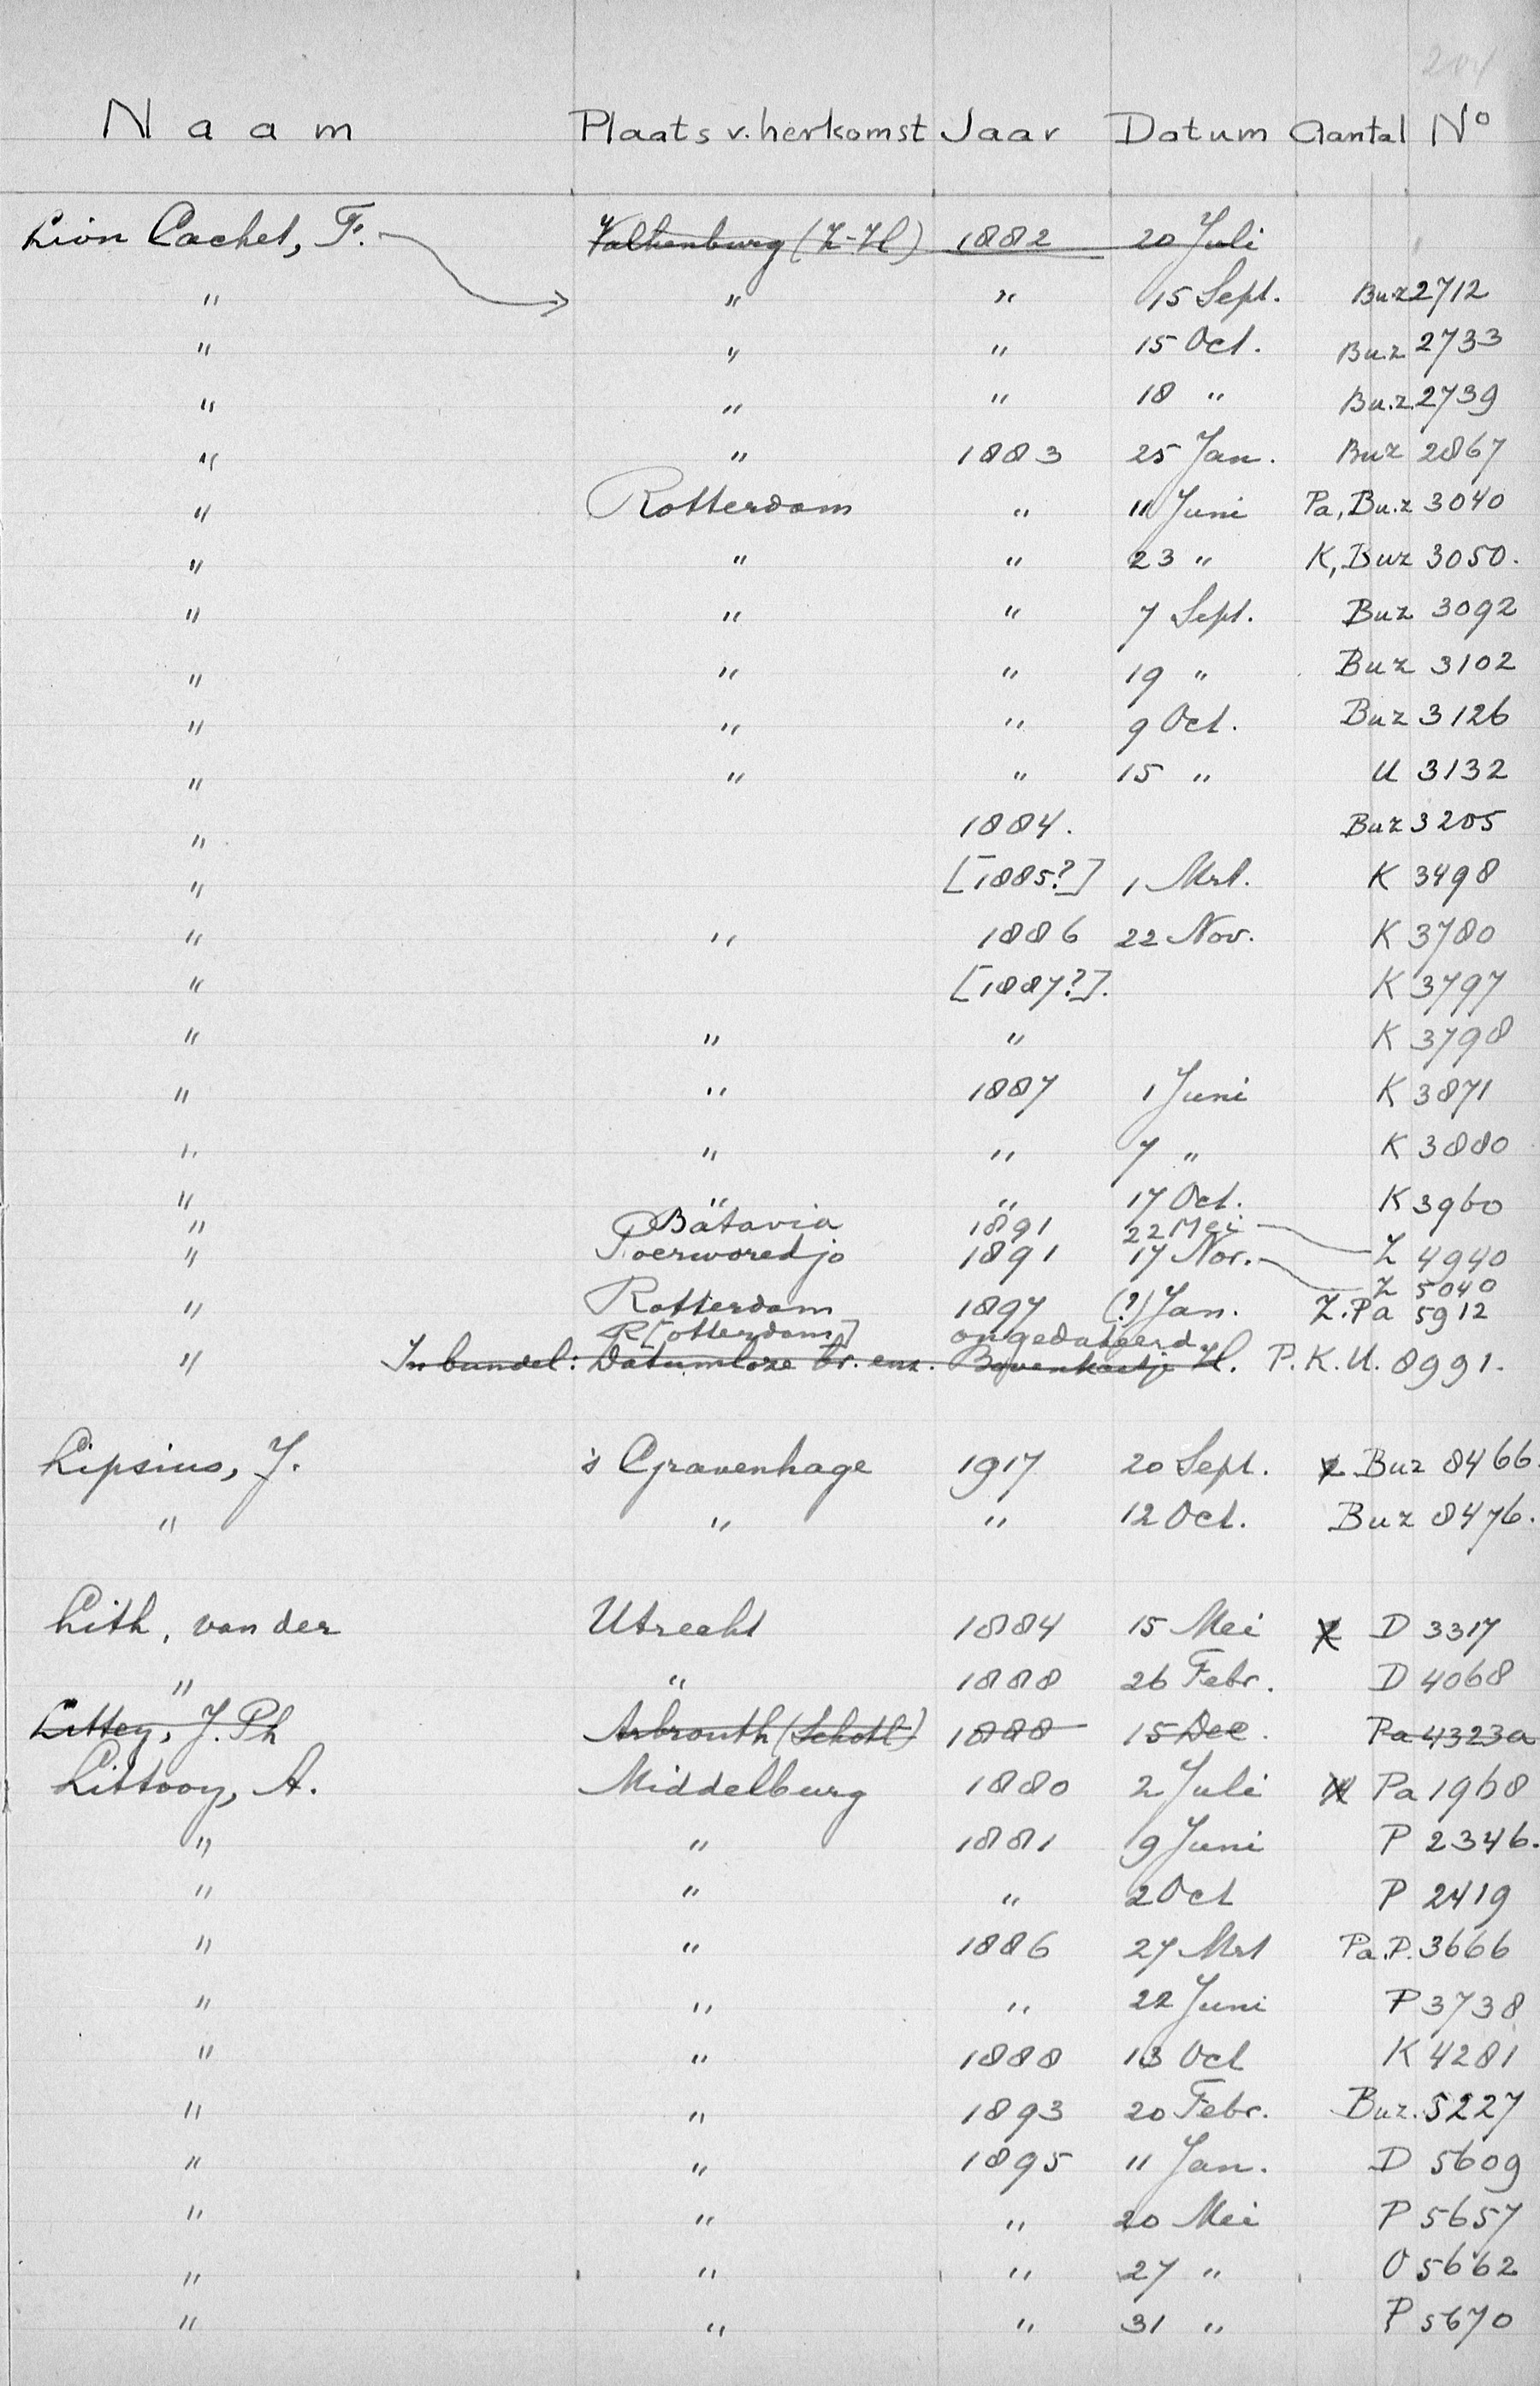 204
Naam Plaats v. herkomst Jaar Datum Aantal No
Lion Cachet, F. Valkenburg (Z-Hl) 1882 20 Juli
" " " 15 Sept. Buz 2712
" " " 15 Oct. Bu.z 2733
" " " 18 " Bu.z. 2739
" " 1883 25 Jan. Buz 2867
" Rotterdam " 11 Juni Pa, Bu.z 3040
" " " 23 " K, Buz 3050.
" " " 7 Sept. Buz 3092
" " " 19 " Buz 3102
" " " 9 Oct. Buz 3126
" " " 15 " U 3132
" 1884. Buz 3205
" [1885?] 1 Mrt. K 3498
" " 1886 22 Nov. K 3780
" [1887?]. K 3797
" " " K 3798
" " 1887 1 Juni K 3871
" " " 7 " K 3880
" " " 17 Oct. K 3960
" Batavia 1891 22 Mei Z 4940
" Poerworedjo 1891 17 Nov. Z 5040
" Rotterdam 1897 (?) Jan. Z. Pa 5912
R[otterdam] ongedateerd
" In bundel: Datumloze br. enz. Bovenkastje H. P. K. U. 8991.
Lipsius, J. 's Gravenhage 1917 20 Sept. 2 Buz 8466.
" " " 12 Oct. Buz 8476.
Lith, van der Utrecht 1884 15 Mei 2 D 3317
" " 1888 26 Febr. D 4068
Littey, J. Ph Arbrouth (Schotl) 1888 15 Dec. Pa 4323a
Littooy, A. Middelburg 1880 2 Juli Pa 1968
" " 1881 9 Juni P 2346.
" " " 2 Oct P 2419
" " 1886 27 Mrt Pa. P. 3666
" " " 22 Juni P 3738
" " 1888 13 Oct K 4281
" " 1893 20 Febr. Buz. 5227
" " 1895 11 Jan. D 5609
" " " 20 Mei P 5657
" " " 27 " O 5662
" " " 31 " P 5670